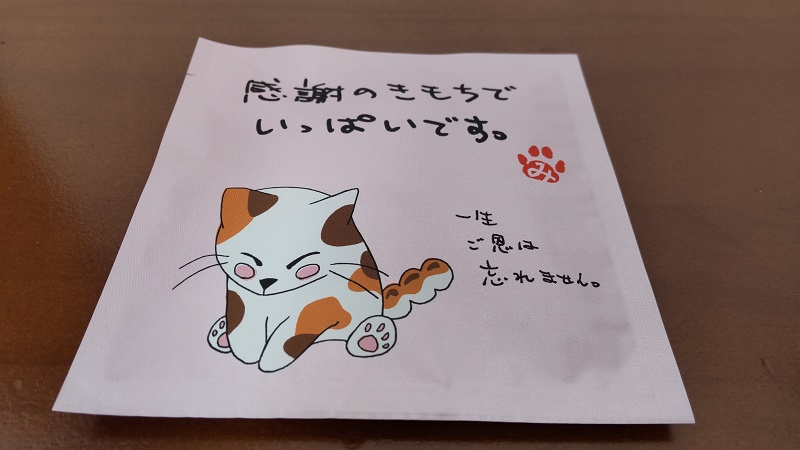 感謝のきもちで
いっぱいです。
み
一生
ご恩は
忘れません。